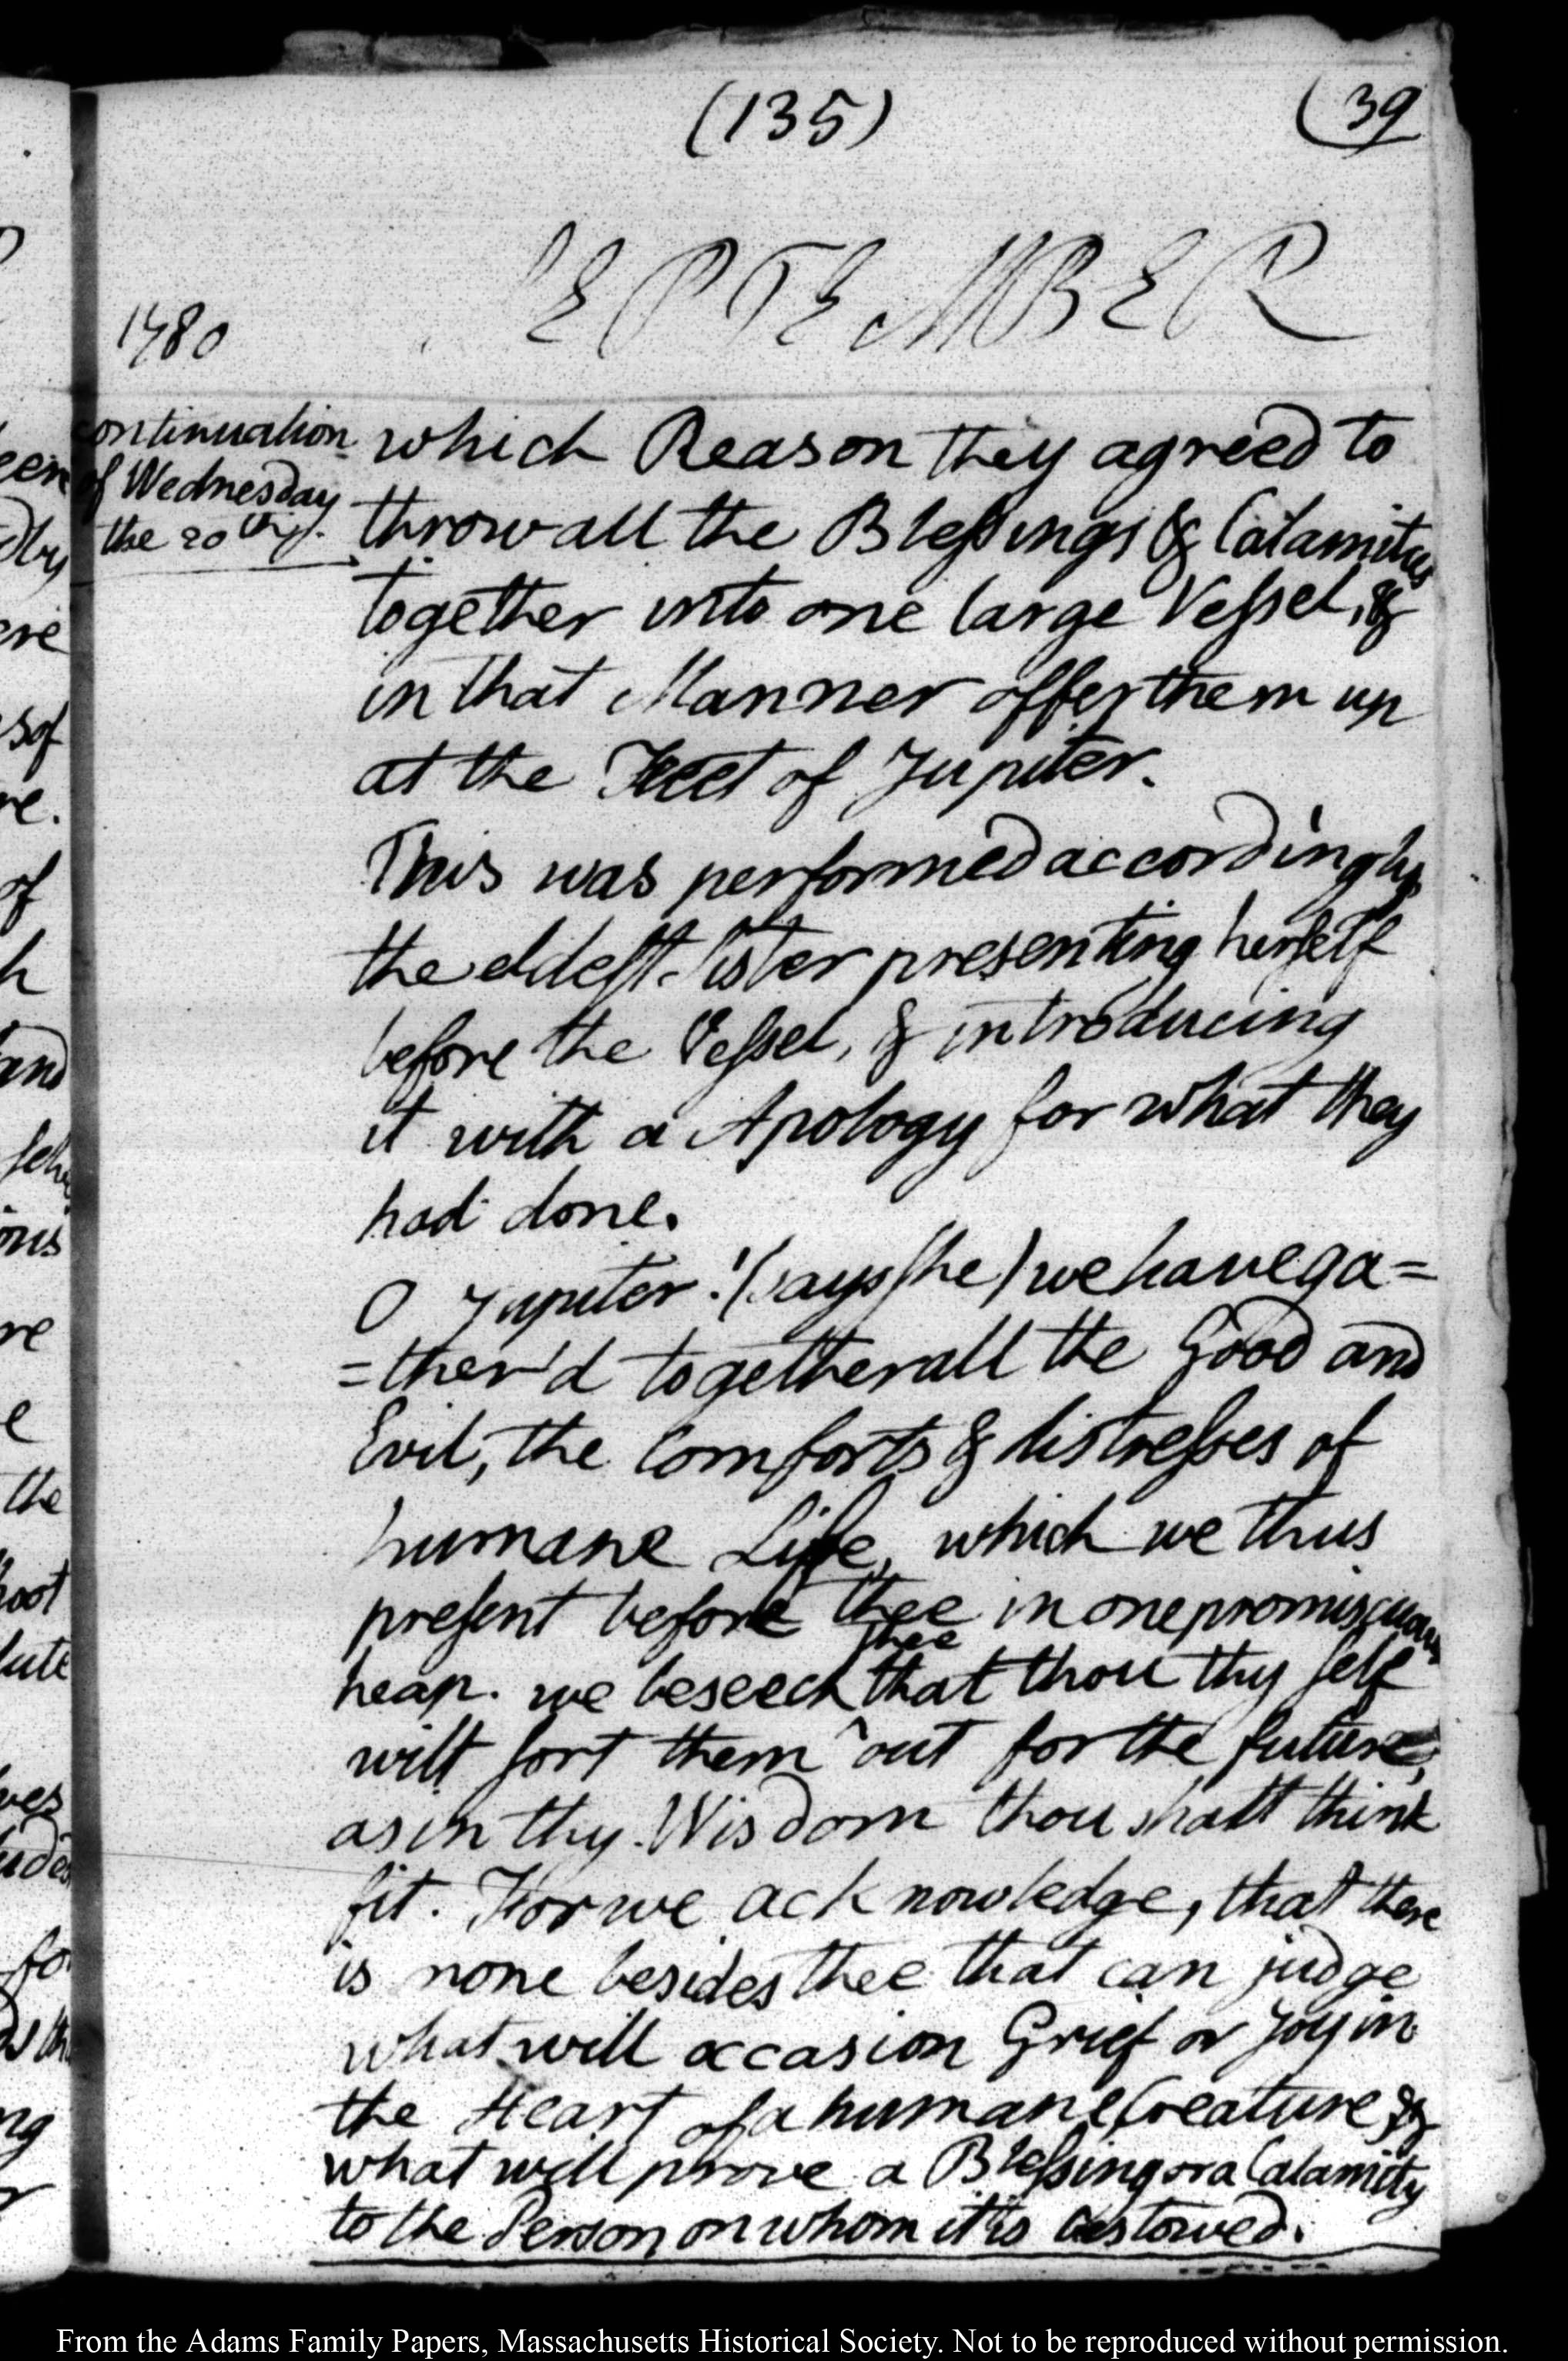 (135)
39
SEPTEMBER
1780
continuation
of Wednesday
the 20th.
which Reason they agreed to
throw all the Blessings & Calamities
together into one large Vessel, &
in that Manner offer them up
at the Feet of Jupiter.
This was performed accordingly,
the eldest Sister presenting herself
before the Vessel, & introducing
it with a Apology for what they
had done.
O Jupiter! (says she) we have ga=
=ther'd together all the Good and
Evil, the Comforts & distresses of
humane Life, which we thus
present before thee in one promiscuous
thee
heap. we beseech that thou thy self
wilt sort them ^ out for the future,
as in thy Wisdom thou shalt think
fit. For we acknowledge, that there
is none besides thee that can judge
what will occasion Grief or Joy in
the Heart of a humane Creature, &
what will prove a Blessing or a Calamity
to the Person on whom it is bestowed.
From the Adams Family Papers, Massachusetts Historical Society. Not to be reproduced without permission.